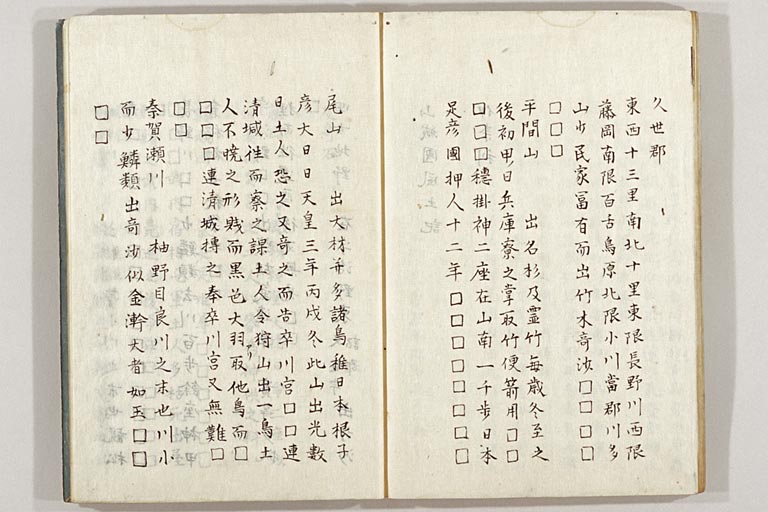 久世郡
東西十三里南北十里東限長野川西限
藤岡南限百舌鳥原北限小川當郡川多
山少民家冨有而出竹木奇沙□□□
□□□
平間山　出名杉及霊竹毎歳冬至之
後初甲日兵庫寮之掌取竹便箭用□□
□□□穗掛神二座在山南一千歩日本
足彦國押人十二年□□□□□□□□
尾山　出大材并多諸鳥稚日本根子
彦大日日天皇三年丙戌冬此山出光數
日土人恐之又奇之而告卒川宮□□連
清城徃而察之課土人令狩山出一鳥土
人不曉之形賤而黒色大羽取他鳥而□
□□□連清城摶之奉卒川宮又無難□
□□
奈賀瀬川　柚野目良川之末也川小
而少鱗類出奇沙似金大者如玉□□
□□